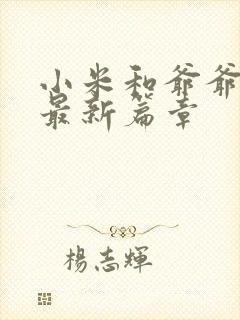 小米和爷爷
最新篇章
杨志輝